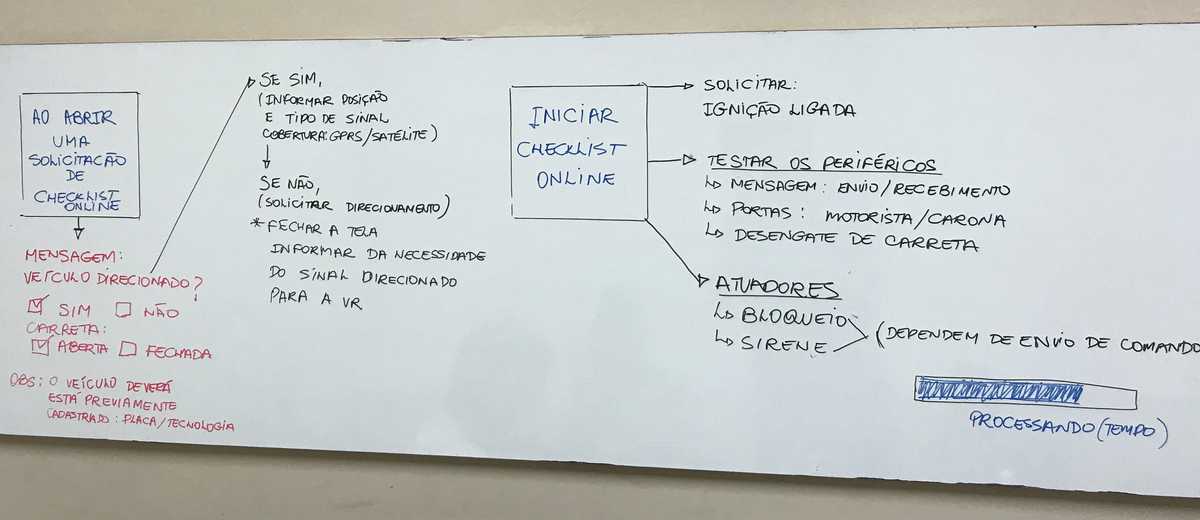 AO ABRIR
UMA
SOLICITACÃO
DE
CHECKLIST
ONLINE
MENSAGEM:
VEÍCULO DIRECIONADO?
SIM NÃO
CARRETA:
ABERTA FECHADA
OBS: O VEÍCULO DEVERÁ
ESTÁ PREVIAMENTE
CADASTRADO: PLACA/TECNOLOGIA
SE SIM,
(INFORMAR POSIÇÃO
E TIPO DE SINAL
COBERTURA: GPRS/SATÉLITE)
SE NÃO,
(SOLICITAR DIRECIONAMENTO)
*FECHAR A TELA
INFORMAR DA NECESSIDADE
DO SINAL DIRECIONADO
PARA A VR
INICIAR
CHECKLIST
ONLINE
SOLICITAR:
IGNIÇÃO LIGADA
TESTAR OS PERIFÉRICOS
↳ MENSAGEM: ENVIO/RECEBIMENTO
↳ PORTAS: MOTORISTA/CARONA
↳ DESENGATE DE CARRETA
ATUADORES
↳ BLOQUEIO
↳ SIRENE (DEPENDEM DE ENVIO DE COMANDO
PROCESSANDO (TEMPO)